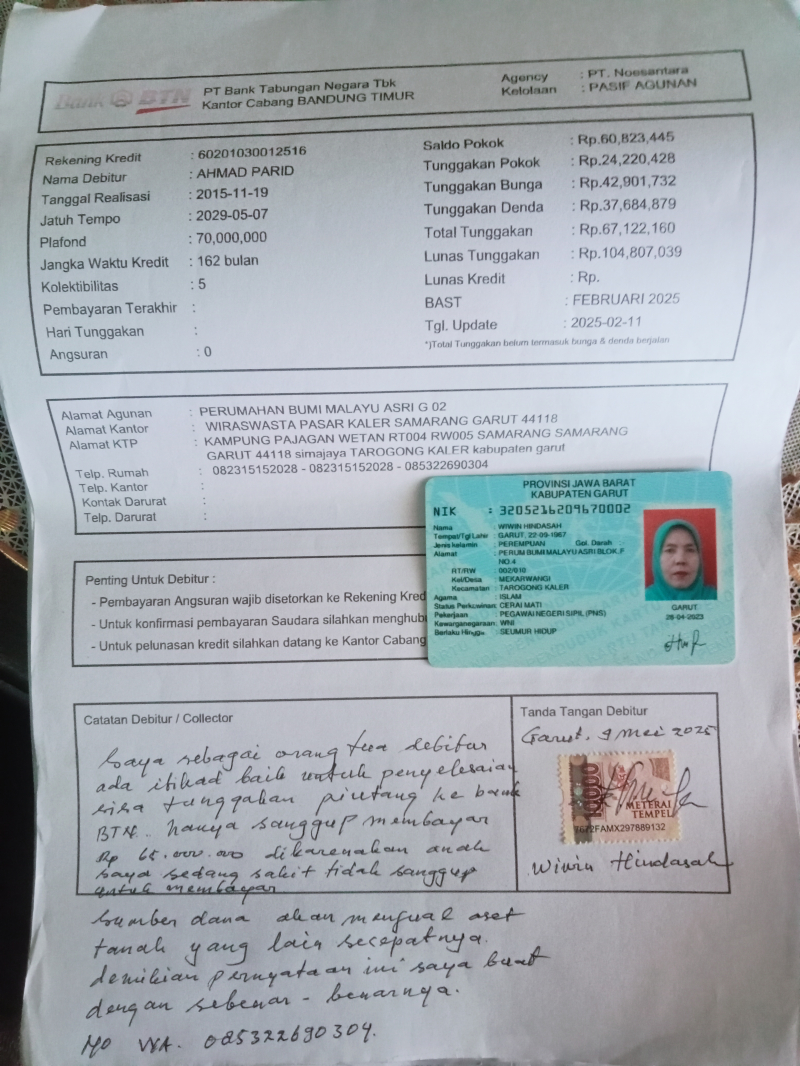 Bank BTN
PT Bank Tabungan Negara Tbk
Kantor Cabang BANDUNG TIMUR
Agency : PT. Noesantara
Kelolaan : PASIF AGUNAN
Rekening Kredit : 60201030012516
Nama Debitur : AHMAD PARID
Tanggal Realisasi : 2015-11-19
Jatuh Tempo : 2029-05-07
Plafond : 70,000,000
Jangka Waktu Kredit : 162 bulan
Kolektibilitas : 5
Pembayaran Terakhir :
Hari Tunggakan :
Angsuran : 0
Saldo Pokok : Rp.60,823,445
Tunggakan Pokok : Rp.24,220,428
Tunggakan Bunga : Rp.42,901,732
Tunggakan Denda : Rp.37,684,879
Total Tunggakan : Rp.67,122,160
Lunas Tunggakan : Rp.104,807,039
Lunas Kredit : Rp.
BAST : FEBRUARI 2025
Tgl. Update : 2025-02-11
*)Total Tunggakan belum termasuk bunga & denda berjalan
Alamat Agunan : PERUMAHAN BUMI MALAYU ASRI G 02
Alamat Kantor : WIRASWASTA PASAR KALER SAMARANG GARUT 44118
Alamat KTP : KAMPUNG PAJAGAN WETAN RT004 RW005 SAMARANG SAMARANG
GARUT 44118 simajaya TAROGONG KALER kabupaten garut
Telp. Rumah : 082315152028 - 082315152028 - 085322690304
Telp. Kantor :
Kontak Darurat :
Telp. Darurat :
PROVINSI JAWA BARAT
KABUPATEN GARUT
NIK : 3205216209670002
Nama : WIWIN HINDASAH
Tempat/Tgl Lahir : GARUT, 22-09-1967
Jenis kelamin : PEREMPUAN Gol. Darah
Alamat : PERUM BUMI MALAYU ASRI BLOK.F
NO.4
RT/RW : 002/010
Kel/Desa : MEKARWANGI
Kecamatan : TAROGONG KALER
Agama : ISLAM
Status Perkawinan: CERAI MATI
Pekerjaan : PEGAWAI NEGERI SIPIL (PNS)
Kewarganegaraan: WNI
Berlaku Hingga : SEUMUR HIDUP
GARUT
28-04-2023
Penting Untuk Debitur :
- Pembayaran Angsuran wajib disetorkan ke Rekening Kred
- Untuk konfirmasi pembayaran Saudara silahkan menghub
- Untuk pelunasan kredit silahkan datang ke Kantor Cabang
Catatan Debitur / Collector
Saya sebagai orang tua debitur
ada itikad baik untuk penyelesaian
sisa tunggakan piutang ke bank
BTN. hanya sanggup membayar
Rp 65.000.00 dikarenakan anak
saya sedang sakit tidak sanggup
untuk membayar
Sumber dana akan menjual aset
tanah yang lain secepatnya.
demikian pernyataan ini saya buat
dengan sebenar-benarnya.
No WA. 085322690304.
Tanda Tangan Debitur
Garut, 9 Mei 2025
10000
METERAI
TEMPEL
7672FAMX297889132
Wiwin Hindasah